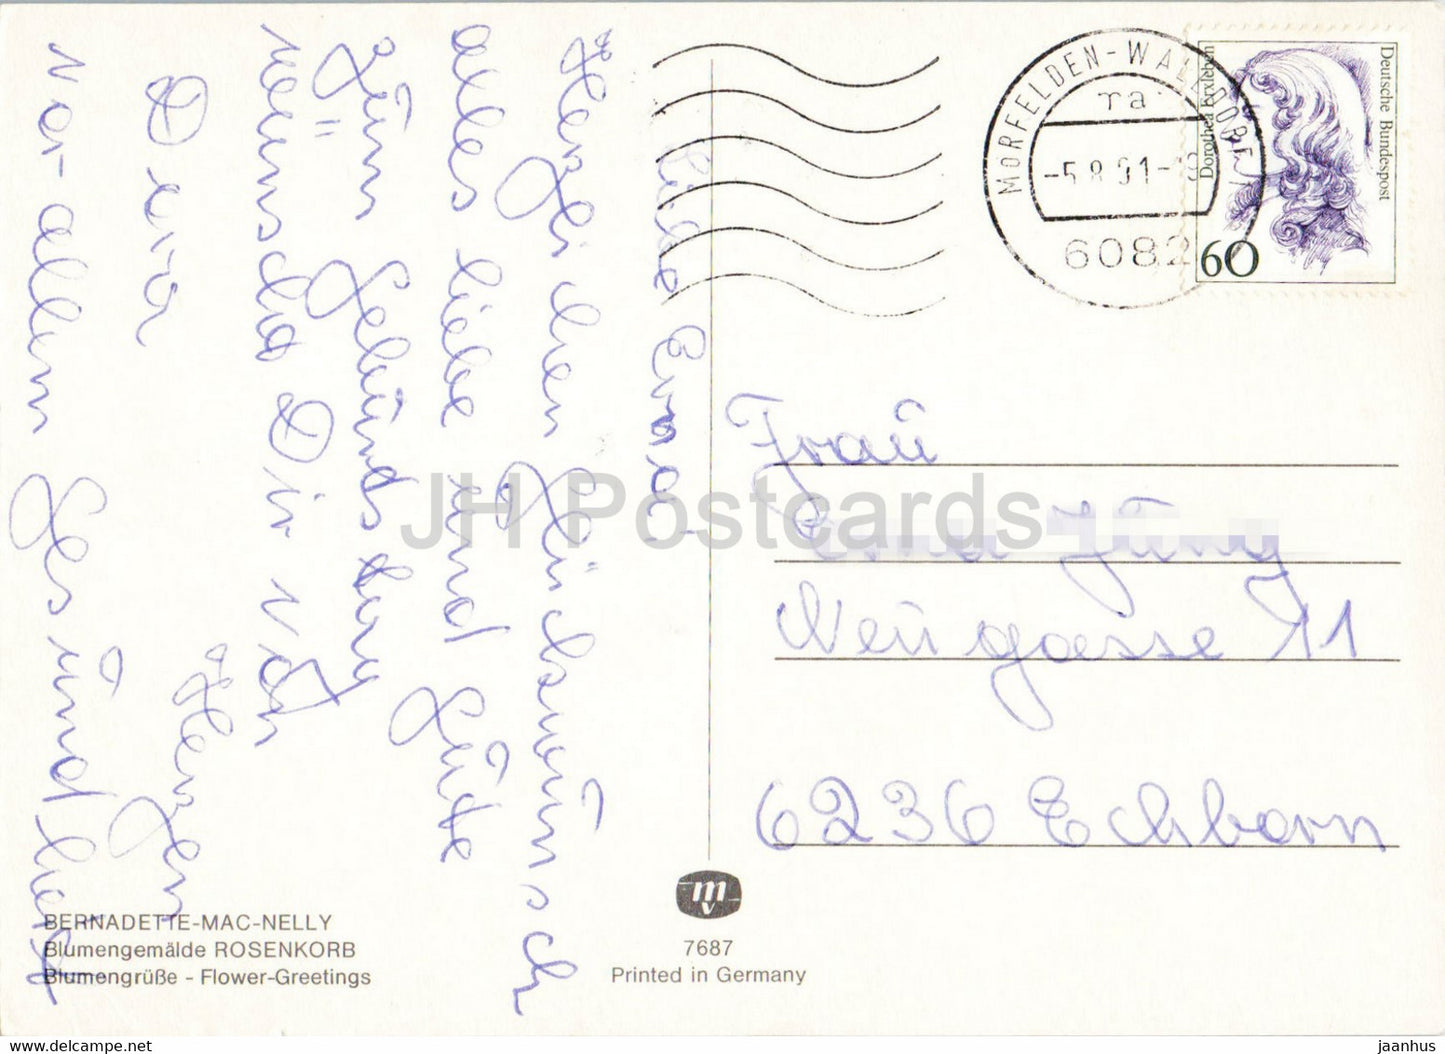 Liebe Erna!
Herzlichen Glückwünsch
alles liebe und Güte
zum Gebürtstag
wünscht Dir von
Herzen
Deine
vor allem Gesündheit
MÖRFELDEN-WALLDORF 1
ra
-5.8.91-18
6082
Deutsche Bundespost
Dorothea Erxleben
60
Fraü
Erna Jüng
Neügasse 11
6236 Echborn
JH Postcards
BERNADETTE-MAC-NELLY
Blumengemälde ROSENKORB
Blumengrüße - Flower-Greetings
mv
7687
Printed in Germany
www.delcampe.net
jaanhus